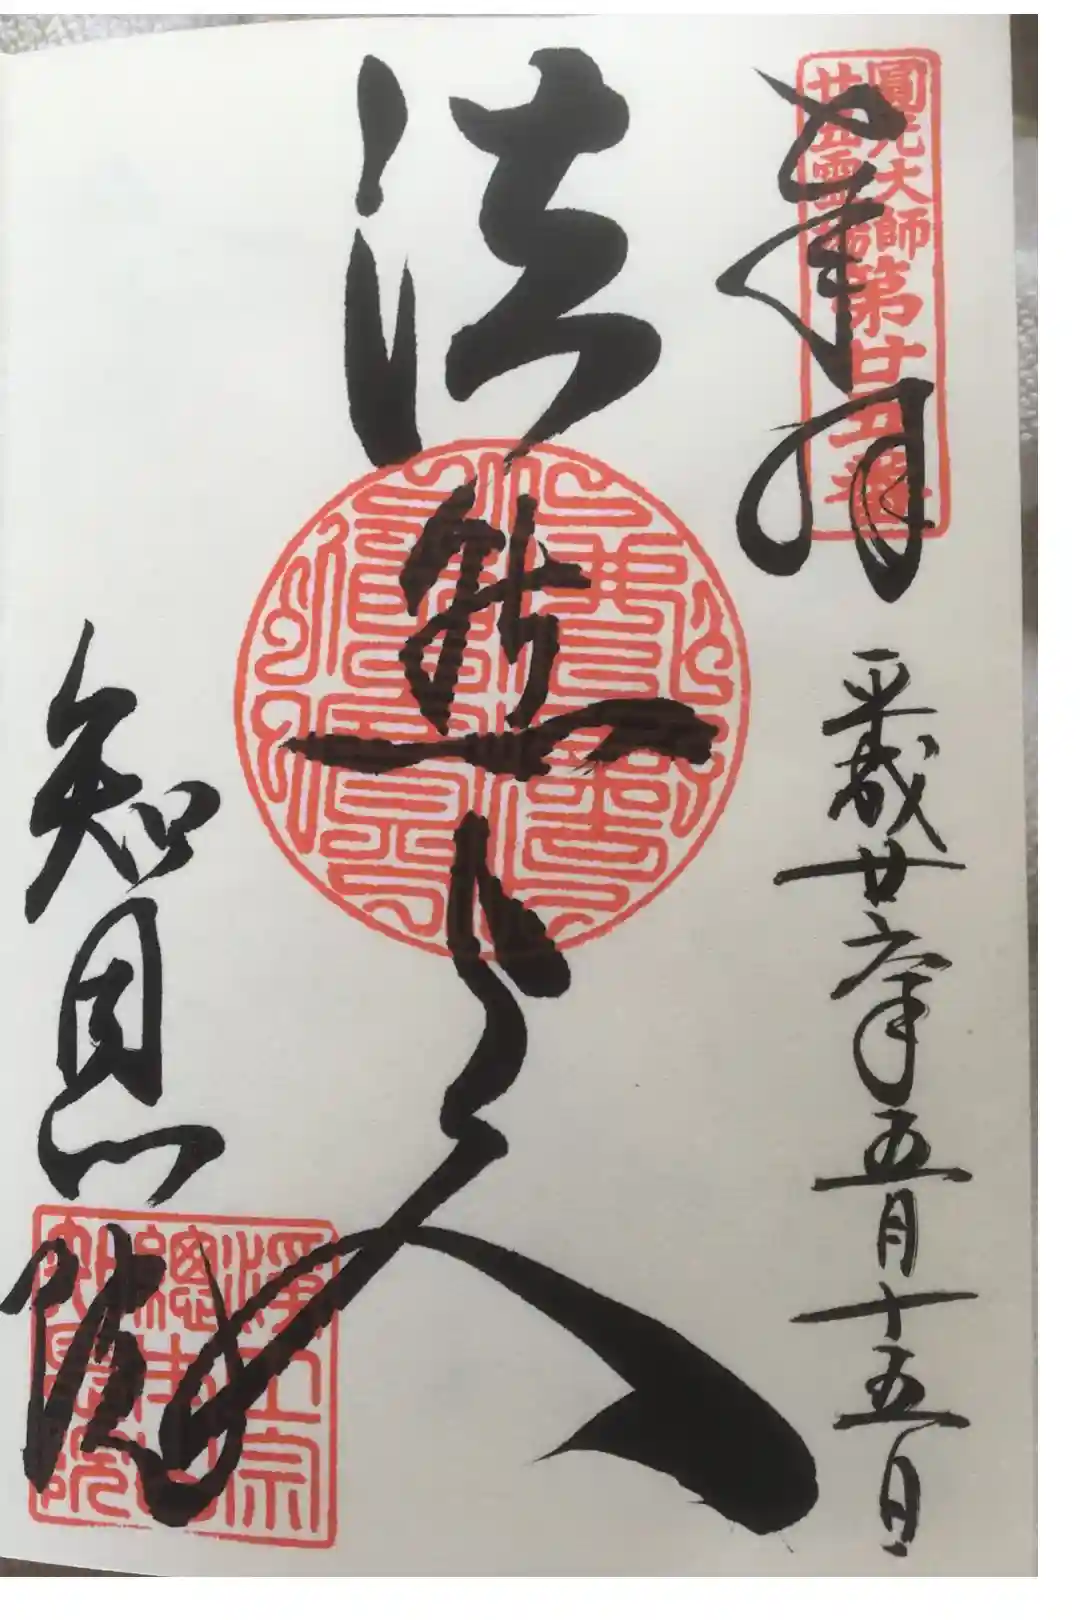 奉拝
圓光大師
廿五靈場
第廿五番
平成廿六年五月十五日
法然上人
知恩院
淨土宗
總本山
知恩院